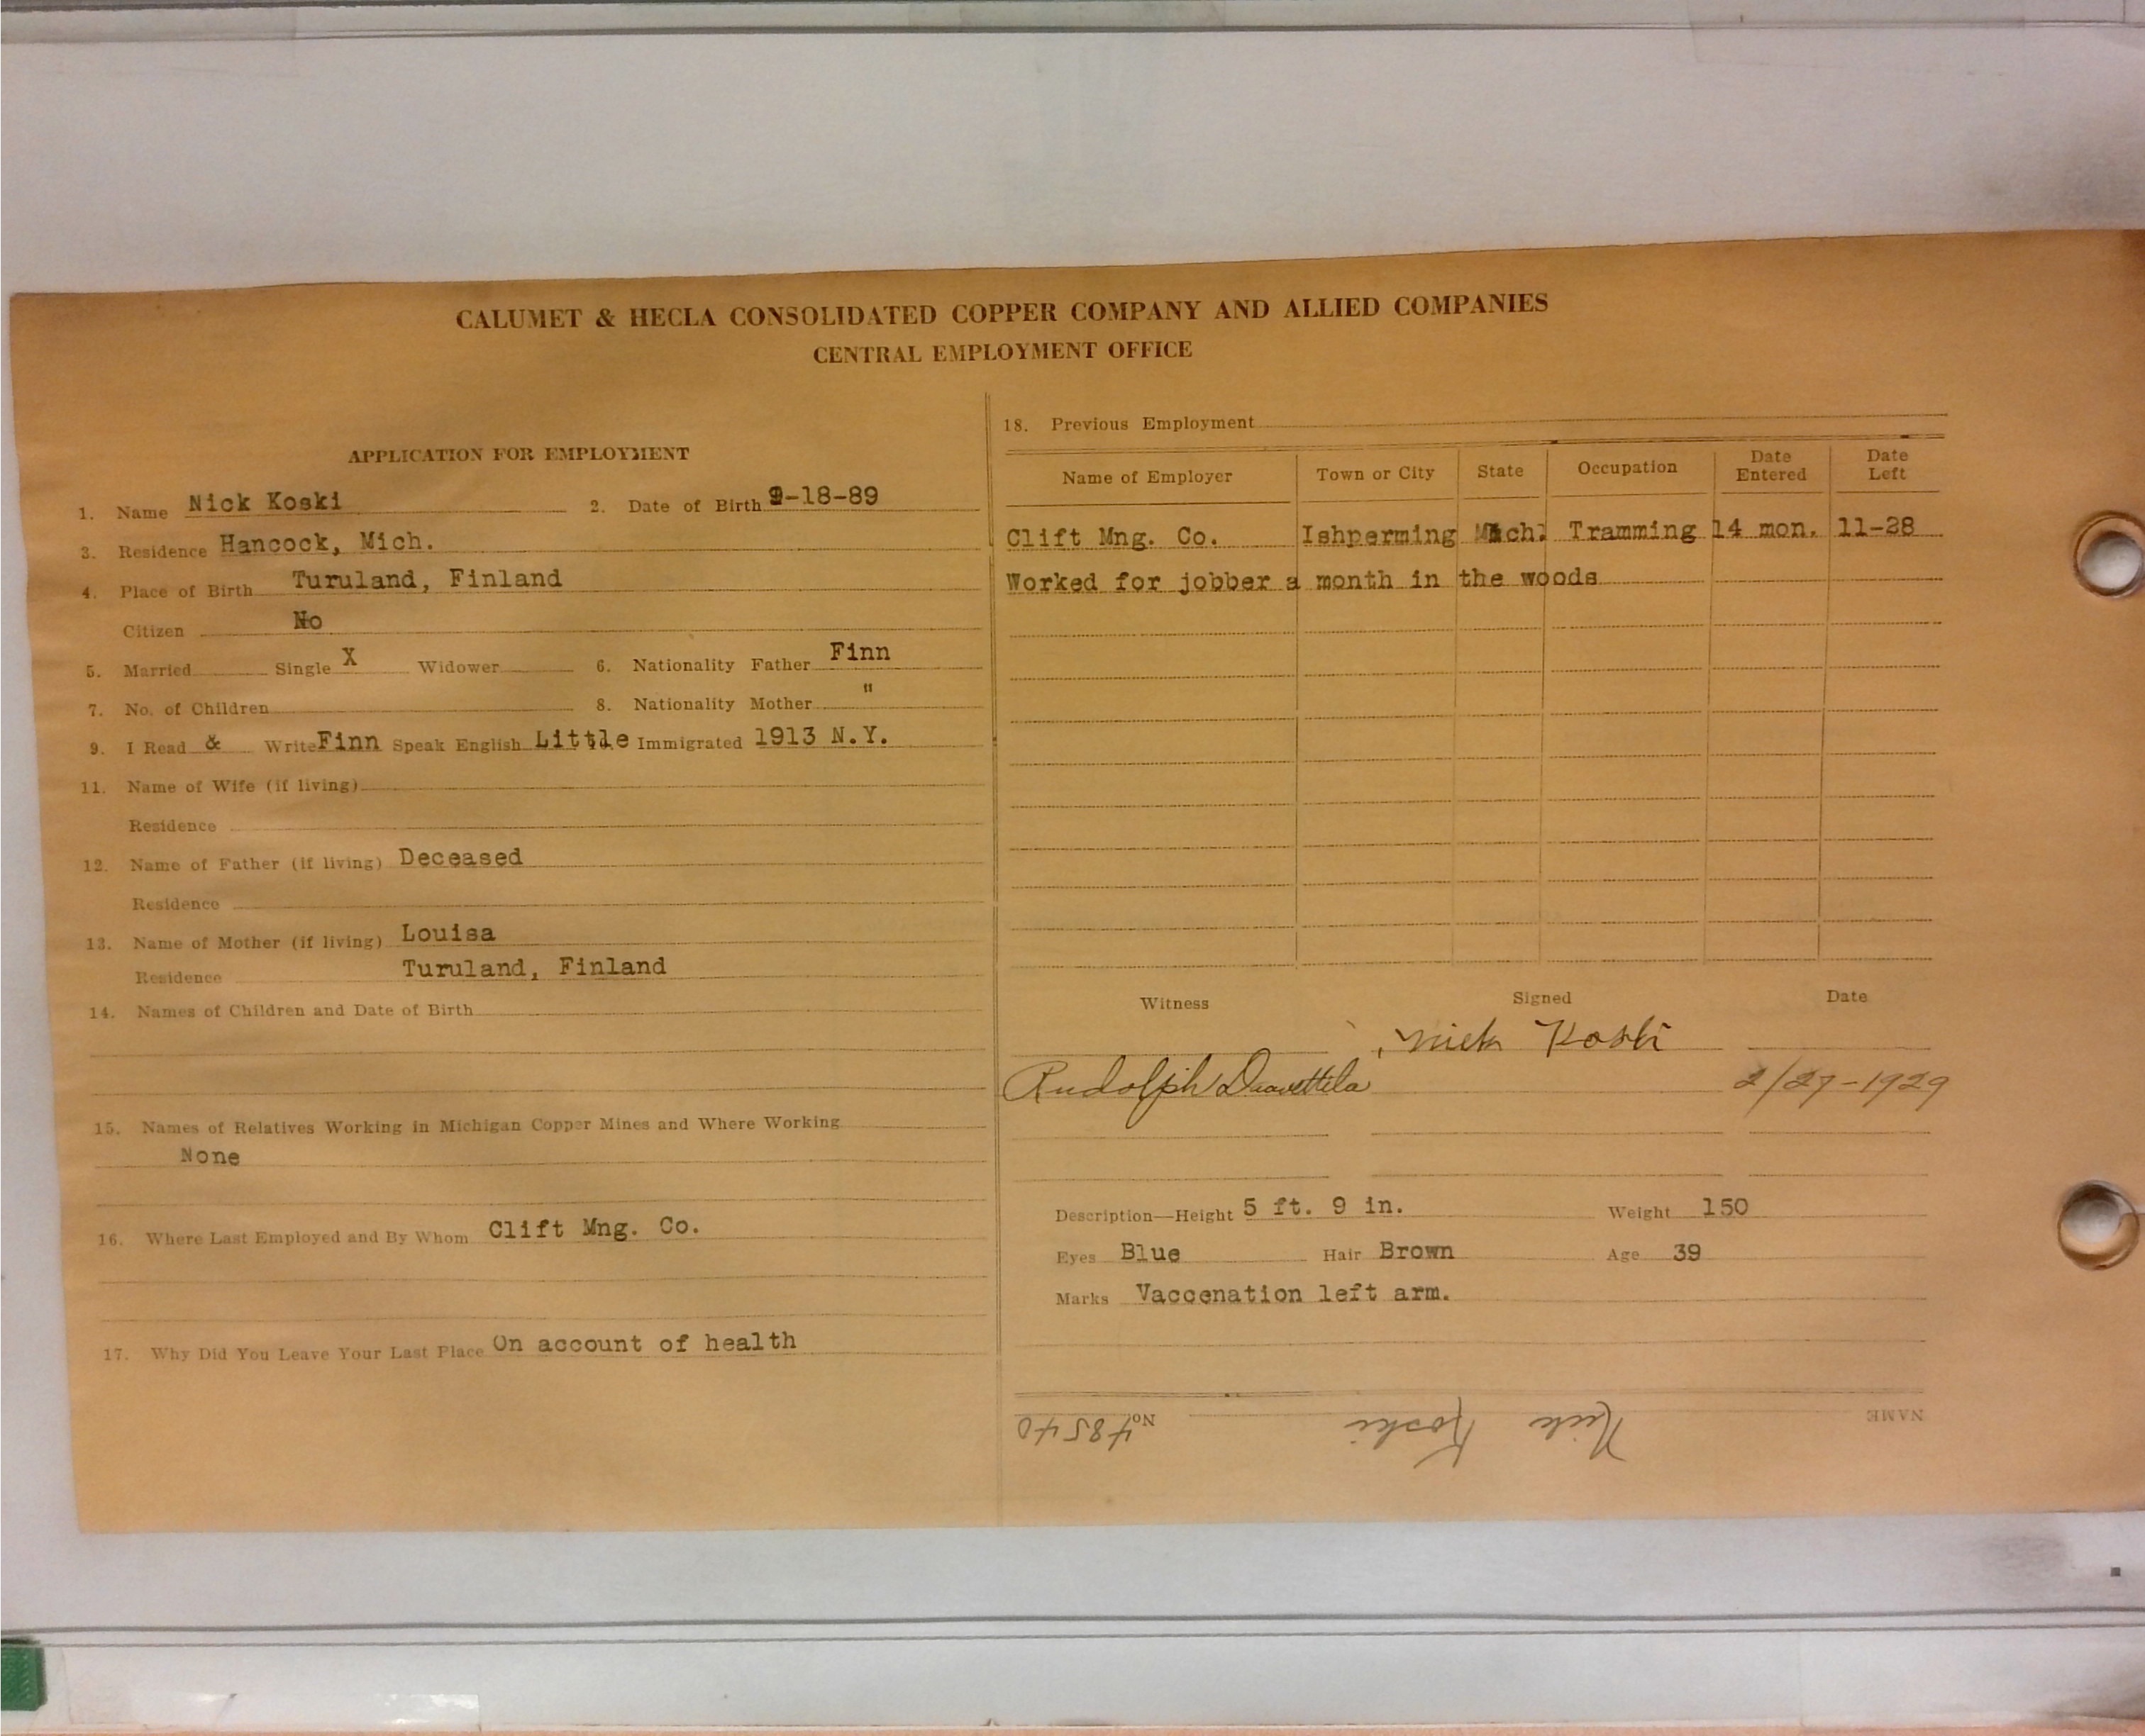 CALUMET & HECLA CONSOLIDATED COPPER COMPANY AND ALLIED COMPANIES
CENTRAL EMPLOYMENT OFFICE
APPLICATION FOR EMPLOYMENT
1. Name Nick Koski 2. Date of Birth 9-18-89
3. Residence Hancock, Mich.
4. Place of Birth Turuland, Finland
Citizen No
5. Married Single X Widower 6. Nationality Father Finn
7. No. of Children 8. Nationality Mother "
9. I Read & Write Finn Speak English Little Immigrated 1913 N.Y.
11. Name of Wife (if living)
Residence
12. Name of Father (if living) Deceased
Residence
13. Name of Mother (if living) Louisa
Residence Turuland, Finland
14. Names of Children and Date of Birth
15. Names of Relatives Working in Michigan Copper Mines and Where Working
None
16. Where Last Employed and By Whom Clift Mng. Co.
17. Why Did You Leave Your Last Place On account of health
18. Previous Employment
Name of Employer Town or City State Occupation Date Entered Date Left
Clift Mng. Co. Ishperming Mich. Tramming 14 mon. 11-28
Worked for jobber a month in the woods
Witness Signed Date
Nick Koski
Rudolph 2/27-1929
Description—Height 5 ft. 9 in. Weight 150
Eyes Blue Hair Brown Age 39
Marks Vaccenation left arm.
NAME Nick Koski No. 48540